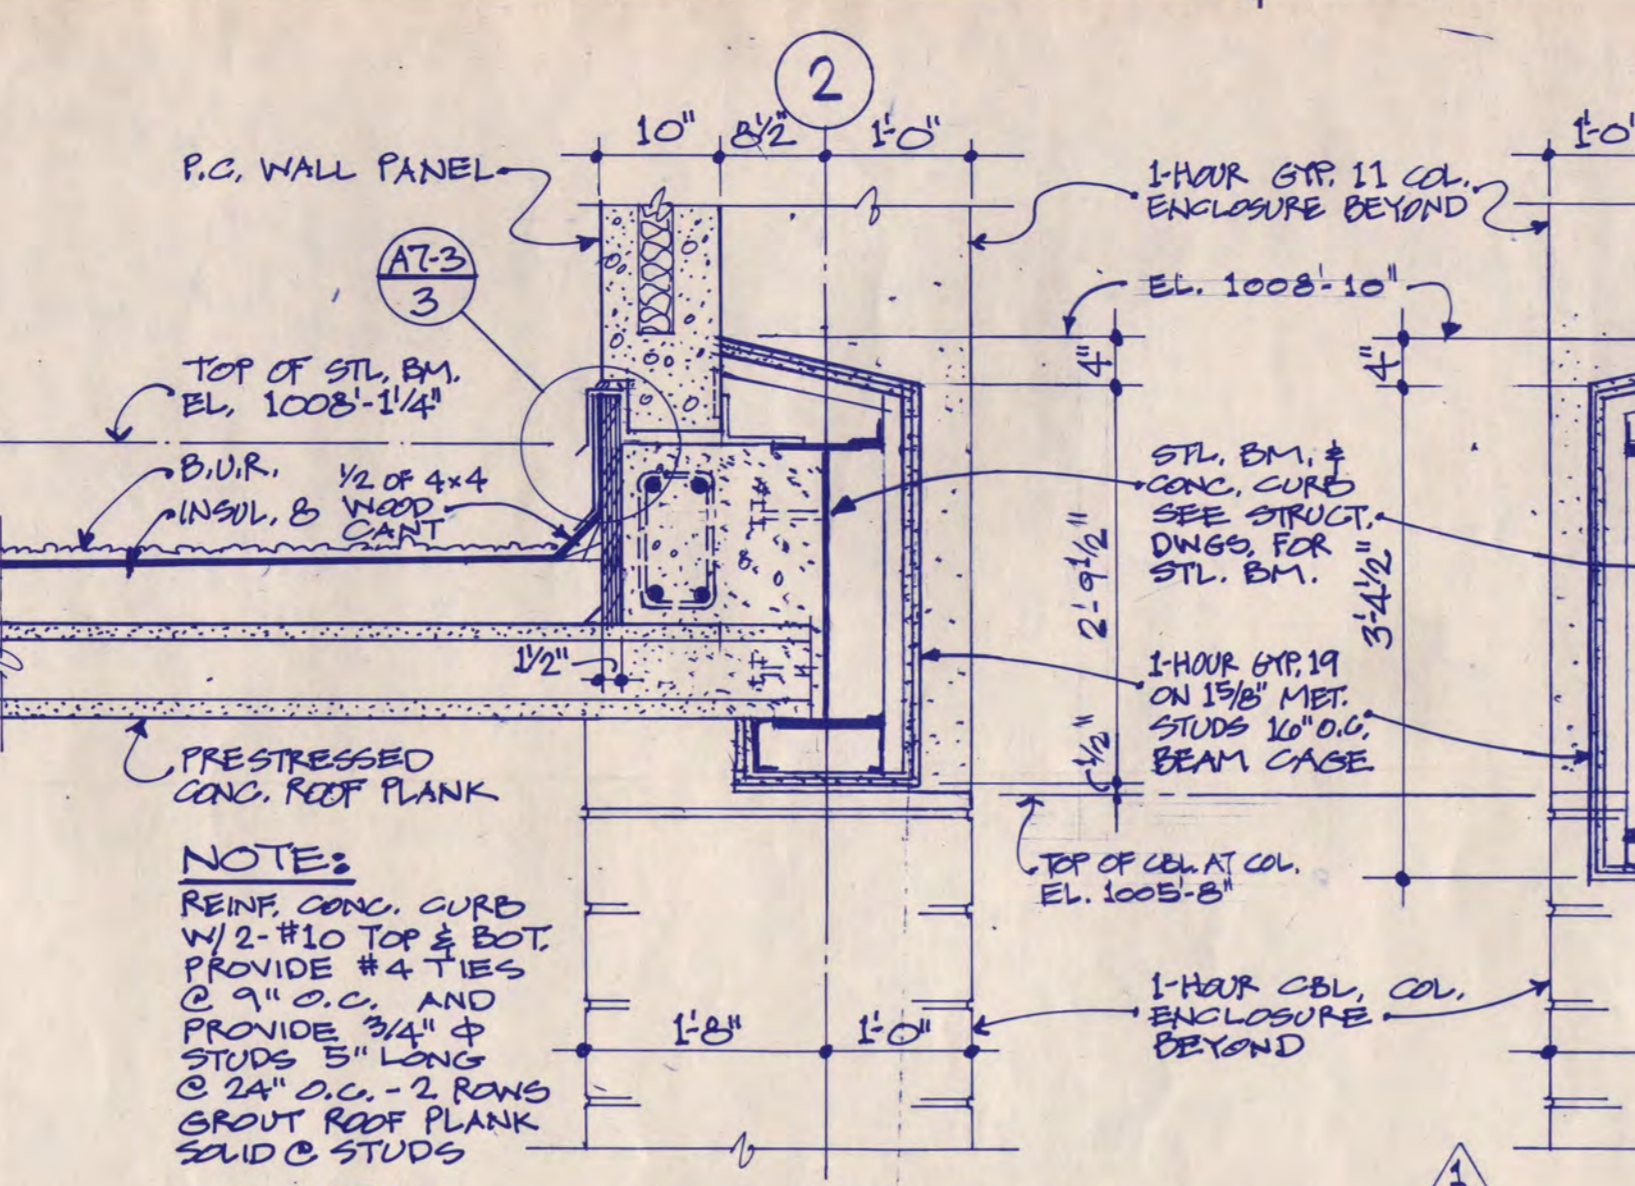 2
10" 8½" 1'-0" 1'-0"
P.C. WALL PANEL
1-HOUR GYP. 11 COL.
ENCLOSURE BEYOND
A7-3
3
EL. 1008'-10"
4" 4"
TOP OF STL. BM.
EL. 1008'-1¼"
B.U.R.
INSUL. 8
½ OF 4x4
WOOD
CANT
STL. BM. &
CONC. CURB
SEE STRUCT.
DWGS. FOR
STL. BM.
2'-9½"
3'-4½"
1½"
1-HOUR GYP. 19
ON 15/8" MET.
STUDS 16" O.C.
BEAM CAGE
½"
PRESTRESSED
CONC. ROOF PLANK
TOP OF CBL. AT COL.
EL. 1005'-8"
NOTE:
REINF. CONC. CURB
W/ 2-#10 TOP & BOT.
PROVIDE #4 TIES
@ 9" O.C. AND
PROVIDE 3/4" φ
STUDS 5" LONG
@ 24" O.C. - 2 ROWS
GROUT ROOF PLANK
SOLID @ STUDS
1'-8" 1'-0"
1-HOUR CBL. COL.
ENCLOSURE
BEYOND
1